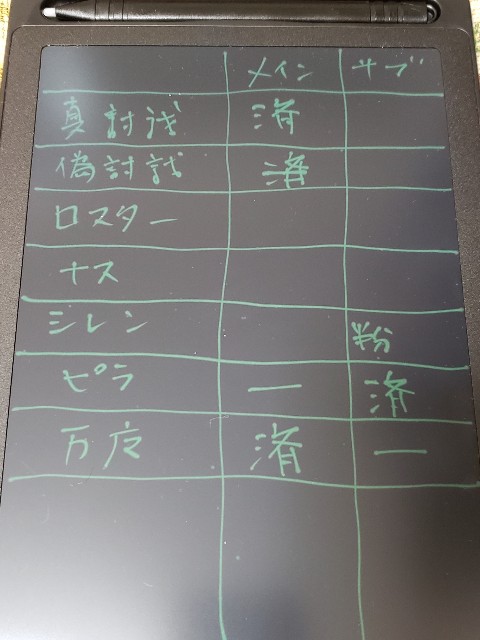 メイン サブ
真討伐 済
偽討伐 済
ロスター
ナス
シレン 粉
ピラ — 済
万広 済 —